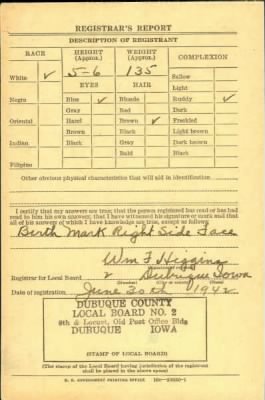 REGISTRAR'S REPORT
DESCRIPTION OF REGISTRANT
RACE HEIGHT (Approx.) WEIGHT (Approx.) COMPLEXION
White ✓ 5-6 135 Sallow
EYES HAIR Light
Negro Blue ✓ Blonde Ruddy ✓
Gray Red Dark
Oriental Hazel Brown ✓ Freckled
Brown Black Light brown
Indian Black Gray Dark brown
Bald Black
Filipino
Other obvious physical characteristics that will aid in identification
I certify that my answers are true; that the person registered has read or has had
read to him his own answers; that I have witnessed his signature or mark and that
all of his answers of which I have knowledge are true, except as follows:
Berth Mark Right Side Face
Wm F Higgins
Registrar for Local Board 2 Dubuque Iowa
(Number) (City or county) (State)
Date of registration June 30th 1942
DUBUQUE COUNTY
LOCAL BOARD NO. 2
6th & Locust, Old Post Office Bldg
DUBUQUE IOWA
(STAMP OF LOCAL BOARD)
(The stamp of the Local Board having jurisdiction of the registrant
shall be placed in the above space.)
U. S. GOVERNMENT PRINTING OFFICE